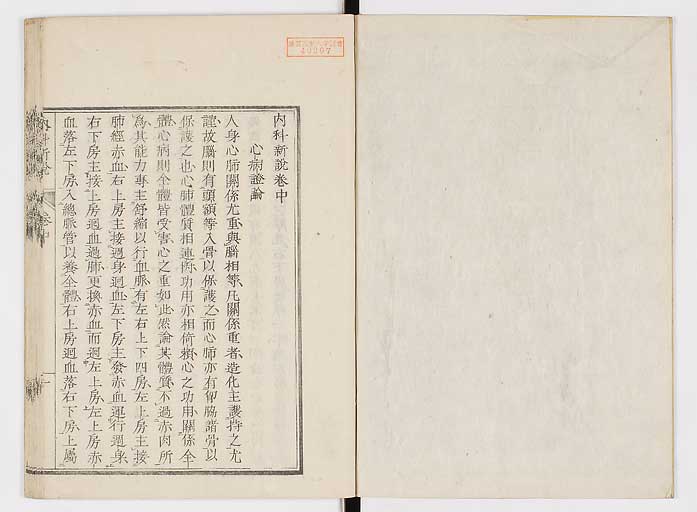 內科新說卷中
心病證論
人身心肺關係尤重、與腦相等、凡關係重者、造化主護持之尤
謹、故腦則有頭額等八骨以保護之、而心肺亦有脅諸骨以
保護之也、心肺體質相連、而功用亦相倚賴、心之功用、關係全
體、心病則全體皆受害、心之重如此、然論其體質、不過赤肉所
爲、其能力專主舒縮以行血脈、有左右上下四房、左上房主接
肺經赤血、右上房主接週身迴血、左下房主發赤血運行週身、
右下房主接上房迴血過肺、更換赤血而迴左上房、左上房赤
血落左下房、入總脈管以養全體、右上房迴血落右下房、上屬
內科新說
卷中
40207